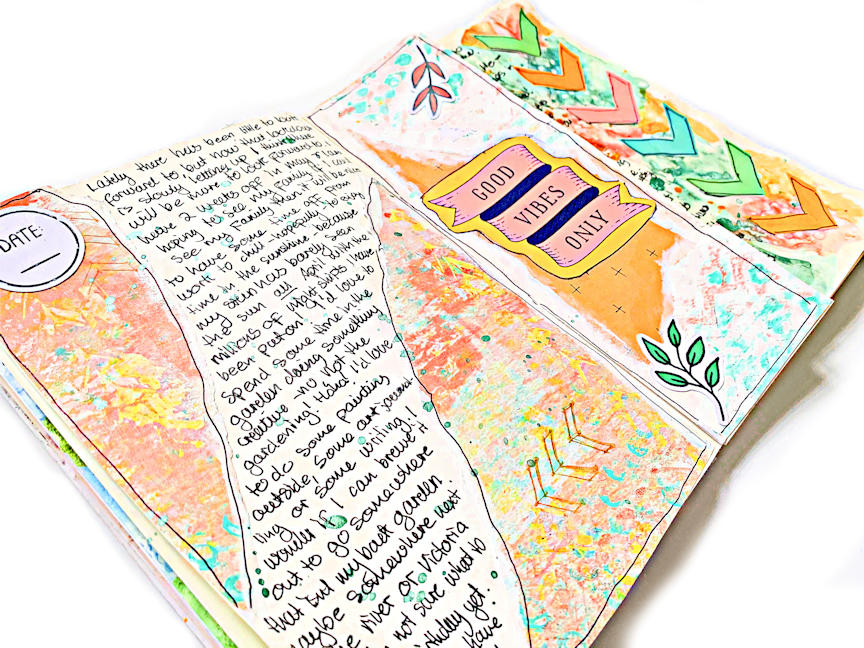 DATE:
Lately there has been little to look
forward to but now that lockdown
is slowly letting up I think there
will be more to look forward to. I
have 2 weeks off in may & I am
hoping to see my family. If I can
see my family then it will be nice
to have some time off from
work to chill - hopefully to enjoy
time in the sunshine because
my Stan has barely seen
the sun all April with the
millions of
been put on! I'd love to
spend some time in the
garden doing something
creative - no not the
gardening! Haha! I'd love
to do some painting
outside, some art journal
ling or some writing. I
wonder if I can brave it
out to go somewhere
that isn't my back garden.
maybe somewhere next
the river or Victoria
not sure what to
birthday yet.
have
GOOD
VIBES
ONLY